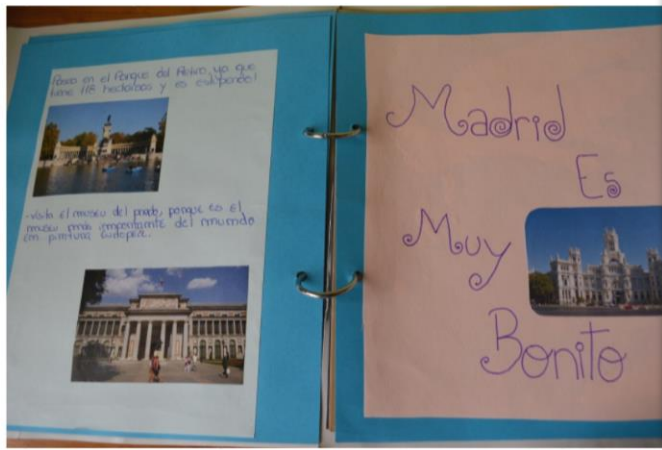 Paseo en el Parque del Retiro, ya que
tiene 118 hectáreas y es estupendo!
-Visita el museu del prado, porque es el
museu más importante del mumdo
em pintura Europea.
Madrid
Es
Muy
Bonito